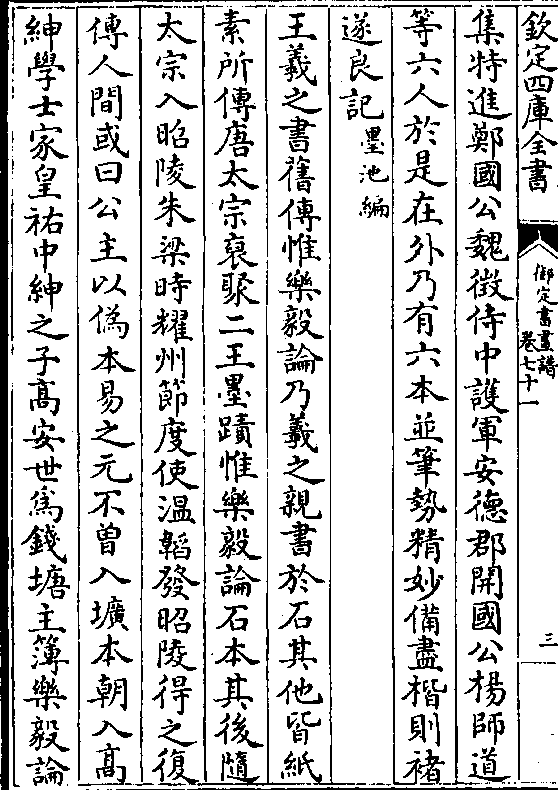 欽定四庫全書
御定書畫譜
卷七十一
三
集特進鄭國公魏徴侍中護軍安德郡開國公楊師道
等六人於是在外乃有六本並筆勢精妙備盡楷則褚
遂良記墨池編
王羲之書舊傳惟樂毅論乃羲之親書於石其他皆紙
素所傳唐太宗裒聚二王墨蹟惟樂毅論石本其後隨
太宗入昭陵朱梁時耀州節度使温韜發昭陵得之復
傳人間或曰公主以偽本易之元不曽入壙本朝入髙
紳學士家皇祐中紳之子髙安世爲錢塘主簿樂毅論